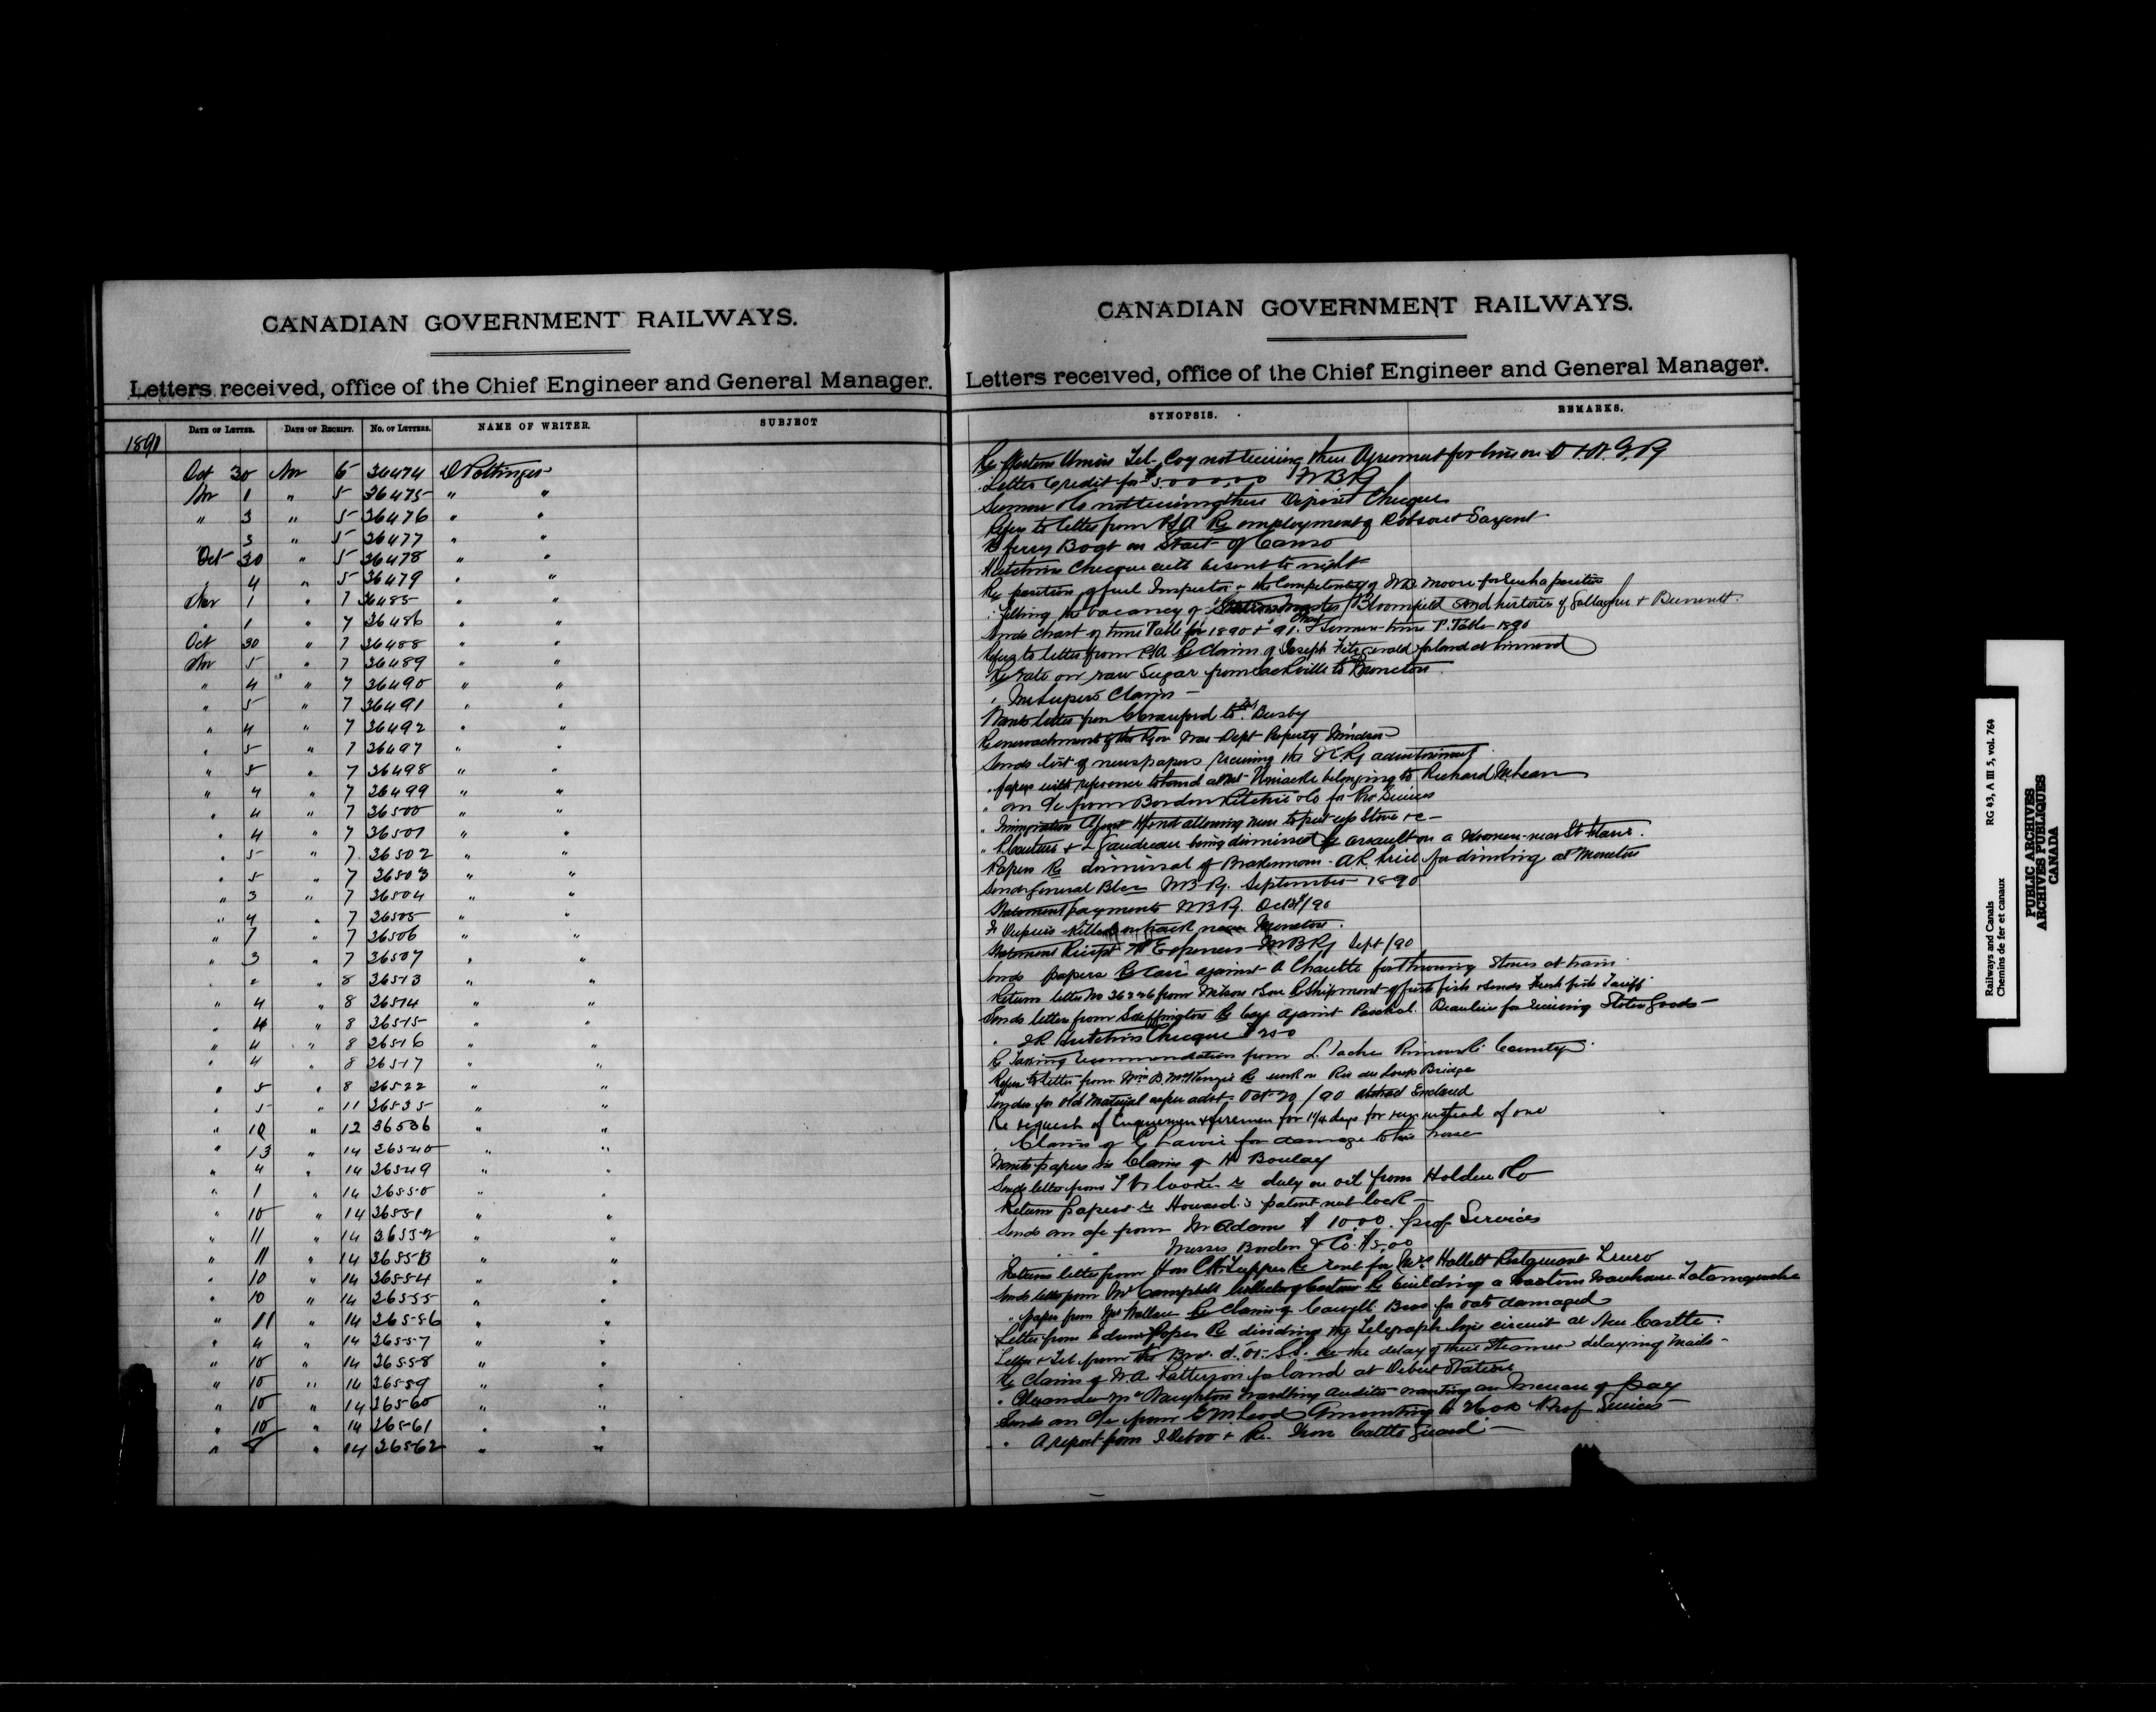 CANADIAN GOVERNMENT RAILWAYS.
Letters received, office of the Chief Engineer and General Manager.
DATE OF LETTER. DATE OF RECEIPT. No. OF LETTERS. NAME OF WRITER. SUBJECT
1890
Oct 30 Nov 6 36474 D Pottinger
Nov 1 " 5 36475 " "
" 3 " 5 36476 " "
3 " 5 36477 " "
Oct 30 " 5 36478 " "
4 " 5 36479 " "
Nov 1 " 7 36485 " "
" 1 " 7 36486 " "
Oct 30 " 7 36488 " "
Nov 5 " 7 36489 " "
" 4 " 7 36490 " "
" 5 " 7 36491 " "
" 4 " 7 36492 " "
" 5 " 7 36497 " "
" 5 " 7 36498 " "
" 4 " 7 36499 " "
" 4 " 7 36500 " "
" 4 " 7 36501 " "
" 5 " 7 36502 " "
" 5 " 7 36503 " "
" 3 " 7 36504 " "
" 4 " 7 36505 " "
" 7 " 7 36506 " "
" 3 " 7 36507 " "
" " 8 36513 " "
" 4 " 8 36514 " "
" 4 " 8 36515 " "
" 4 " 8 36516 " "
" 4 " 8 36517 " "
" 5 " 8 36522 " "
" 5 " 11 36535 " "
" 10 " 12 36536 " "
" 13 " 14 36540 " "
" 4 " 14 36549 " "
" 1 " 14 36550 " "
" 10 " 14 36551 " "
" 11 " 14 36552 " "
" 11 " 14 36553 " "
" 10 " 14 36554 " "
" 10 " 14 36555 " "
" 11 " 14 36556 " "
" 4 " 14 36557 " "
" 10 " 14 36558 " "
" 10 " 14 36559 " "
" 10 " 14 36560 " "
" 10 " 14 36561 " "
" 8 " 14 36562 " "
CANADIAN GOVERNMENT RAILWAYS.
Letters received, office of the Chief Engineer and General Manager.
SYNOPSIS. REMARKS.
Re Western Union Tel. Coy not signing their Agreement for lines on O & N. G. Ry
Letter Credit for $5000.00 WBRy
Co not receiving their Deposit Cheques
Refers to letter from PSA Re employment of Robson & Sargent
Re ferry Boat on Strait of Canso
Hutchins Cheque will be sent to night
Re position of fuel Inspector & the Competency of W.D. Moore for such a position
" filling the vacancy of Station Master Bloomfield send histories of Gallagher & Bennett
Sends chart of time Table for 1890 & 91. Summer time T. Table 1890
Refers to letter from PSA Re Claim of Joseph Fitzgerald for land at Linwood
Re rate on raw Sugar from Sackville to Moncton
" Claim
Wants letter from Crawford to Busby
Re encroachment of the War Dept Property Windsor
Sends list of newspapers receiving the I.C.Ry advertisement
" papers with reference to land at Mt Uniacke belonging to Richard McLean
" an a/c from Borden Ritchie & Co for Pro Services
" Immigration Agent allowing men to put up Stove &c
" & Gaudreau being dismissed Re assault on a Woman near St
Papers Re dismissal of Brakeman A.R. for drinking at Moncton
Sends General Blce WBRy. September 1890
Statement payments WBRy. Oct 31/90
Dupuis killed on track near Moncton.
Statement Receipt & Expenses WBRy Sept /90
Sends papers Re Case against A Charette for Throwing Stones at train
Return letter No 36226 from Wilson & Son Re Shipment of fresh fish & sends fresh fish Tariff
Sends letter from Skeffington Re Case against Paschal Beaulieu for receiving Stolen Goods
" J.R. Hutchins Cheque $200
Re recommendation from L. Tache Rimouski County
Refers to letter from Wm B. McKenzie Re work on Riv du Loup Bridge
Tender for old Material as per advt Oct 20/90 abstract Enclosed
Re request of Enginemen & firemen for 1¼ days for run instead of one
" Claim of G Lavoie for damage to his horse
Wants papers in Claim of H Boulay
Sends letter from re duty on oil from Holden & Co
Return papers re Howard's patent nut lock
Sends an a/c from McAdam $10.00. prof Services
" " " Messrs Borden & Co. $5.00
Returns letter from Hon C H Tupper Re rent for Mrs Hallett Truro
Sends letter from Mr Campbell Collector of Customs Re building a Customs Warehouse Tatamagouche
" paper from Wallace Re Claim of Bros for oats damaged
Letter from Re dividing the Telegraph line circuit at New Castle.
Letter & Tel from the S.S. Re the delay of their Steamer delaying mails
Re Claim of W.A. Patterson for land at Debert Station
" Alexander McNaughton travelling Auditor wanting an Increase of pay
Sends an a/c from G McLeod Amounting to Prof Services
" A report from Re. Iron Cattle Guard
Railways and Canals
Chemins de fer et canaux
RG 43, A III 5, vol. 764
PUBLIC ARCHIVES
ARCHIVES PUBLIQUES
CANADA